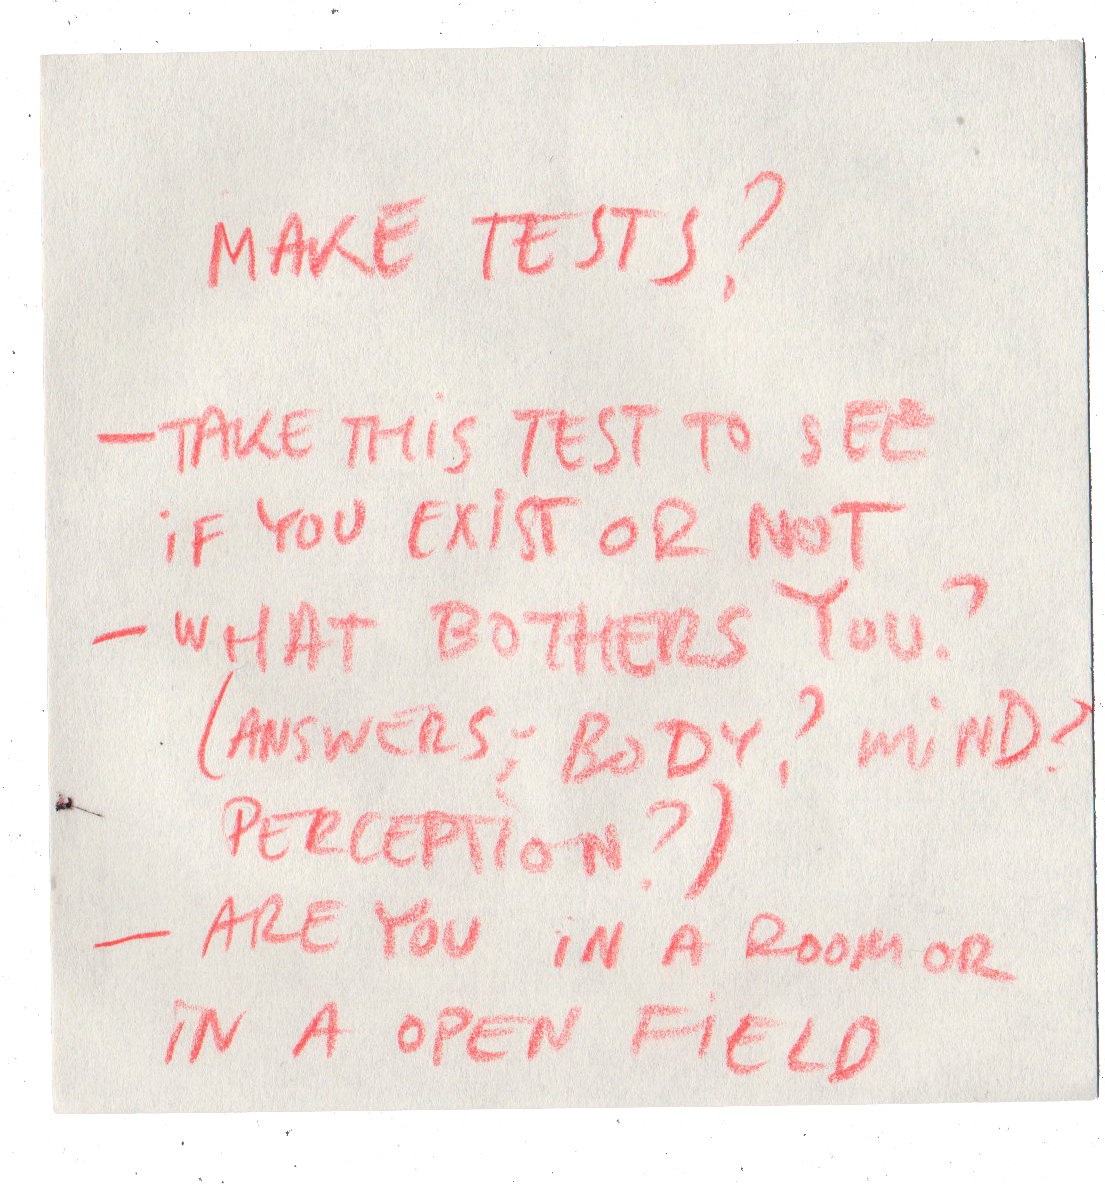 MAKE TESTS?
—TAKE THIS TEST TO SEE
iF YOU EXIST OR NOT
— WHAT BOTHERS YOU?
(ANSWERS; BODY? MiND?
PERCEPTION?)
— ARE YOU iN A ROOM OR
iN A OPEN FiELD